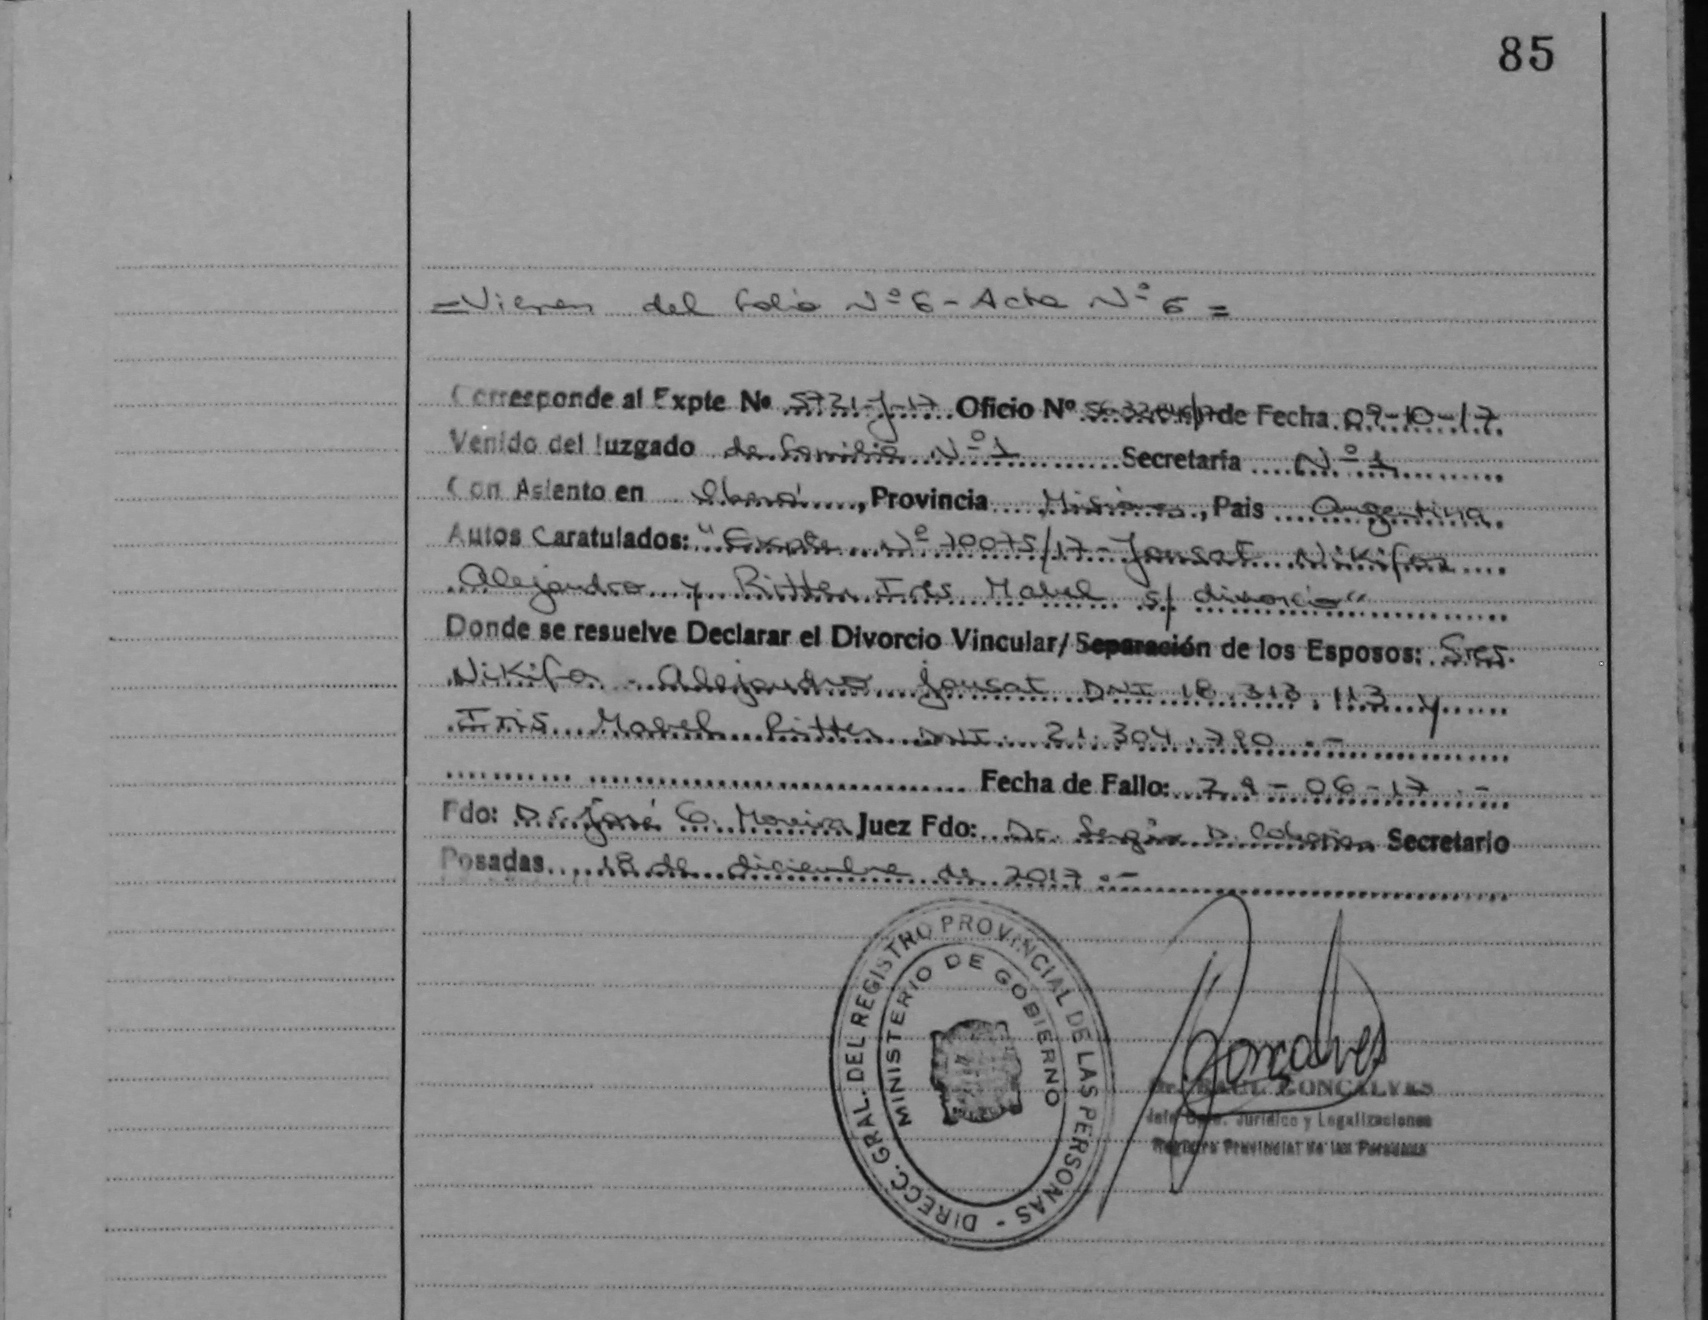 85
=Vienen del folio Nº 6 - Acta Nº 6 =
Corresponde al Expte Nº 5721-J-17 Oficio Nº de Fecha 09-10-17
Venido del Juzgado de Familia Nº 1 Secretaría Nº 1
Con Asiento en Oberá, Provincia Misiones, Pais Argentina
Autos Caratulados: "Expte Nº 10075/17- Jousat Nikifor
Alejandro y Ritter Iris Mabel s/ divorcio"
Donde se resuelve Declarar el Divorcio Vincular/ Separación de los Esposos: Sres.
Nikifor Alejandro Jousat DNI 18.313.113 y
Iris Mabel Ritter DNI. 21.304.790.-
Fecha de Fallo: 29-06-17.-
Fdo: Dr. José G. Moreira Juez Fdo: Dr. Sergio D. Secretario
Posadas, 18 de diciembre de 2017.-
DIRECC. GRAL. DEL REGISTRO PROVINCIAL DE LAS PERSONAS -
MINISTERIO DE GOBIERNO
Gonçalves
Dr. RAUL GONCALVES
Jefe Dpto. Jurídico y Legalizaciones
Registro Provincial de las Personas